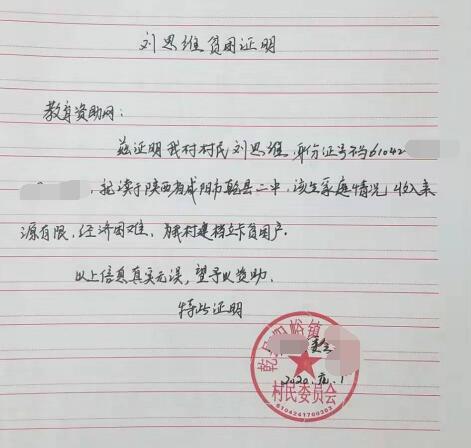 刘思维贫困证明
教育资助网：
兹证明我村村民刘思维，身份证号码61042
，就读于陕西省咸阳市乾县二中，该生家庭情况，收入来
源有限，经济困难，为我村建档立卡贫困户。
以上信息真实无误，望予以资助．
特此证明
乾县 峪镇
2020.
1
村民委员会
6104241700363